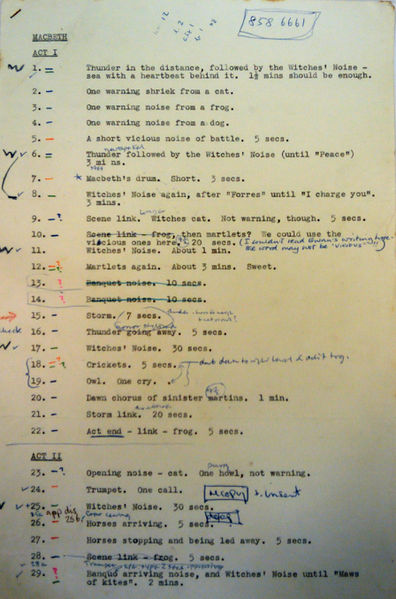 858 6661
MACBETH
ACT I
1. = Thunder in the distance, followed by the Witches' Noise -
sea with a heartbeat behind it. 1½ mins should be enough.
2. - One warning shriek from a cat.
3. - One warning noise from a frog.
4. - One warning noise from a dog.
5. - A short vicious noise of battle. 5 secs.
6. = Thunder followed by the Witches' Noise (until "Peace")
3 mins.
7. - Macbeth's drum. Short. 3 secs.
8. - Witches' Noise again, after "Forres" until "I charge you".
3 mins.
9. -? Scene link. Witches cat. Not warning, though. 5 secs.
10. - Scene link - frog, then martlets? We could use the
vicious ones here. 20 secs. (I couldn't read Gwen's writing here.
The word may not be 'vicious'
11. - Witches' Noise. About 1 min.
12. ? Martlets again. About 3 mins. Sweet.
13. ? Banquet noise. 10 secs.
14. ? Banquet noise. 10 secs.
15. - Storm. 7 secs.
check 16. - Thunder going away. 5 secs.
17. - Witches' Noise. 30 secs.
18. -? Crickets. 5 secs.
19. - Owl. One cry.
20. - Dawn chorus of sinister martins. 1 min.
21. - Storm link. 20 secs.
22. - Act end - link - frog. 5 secs.
ACT II
23. -? Opening noise - cat. One howl, not warning.
24. - Trumpet. One call.
25. - Witches' Noise. 30 secs.
26. - Horses arriving. 5 secs.
27. - Horses stopping and being led away. 5 secs.
28. - Scene link - frog. 5 secs.
29. ? Banquo arriving noise, and Witches' Noise until "Maws
of kites". 2 mins.